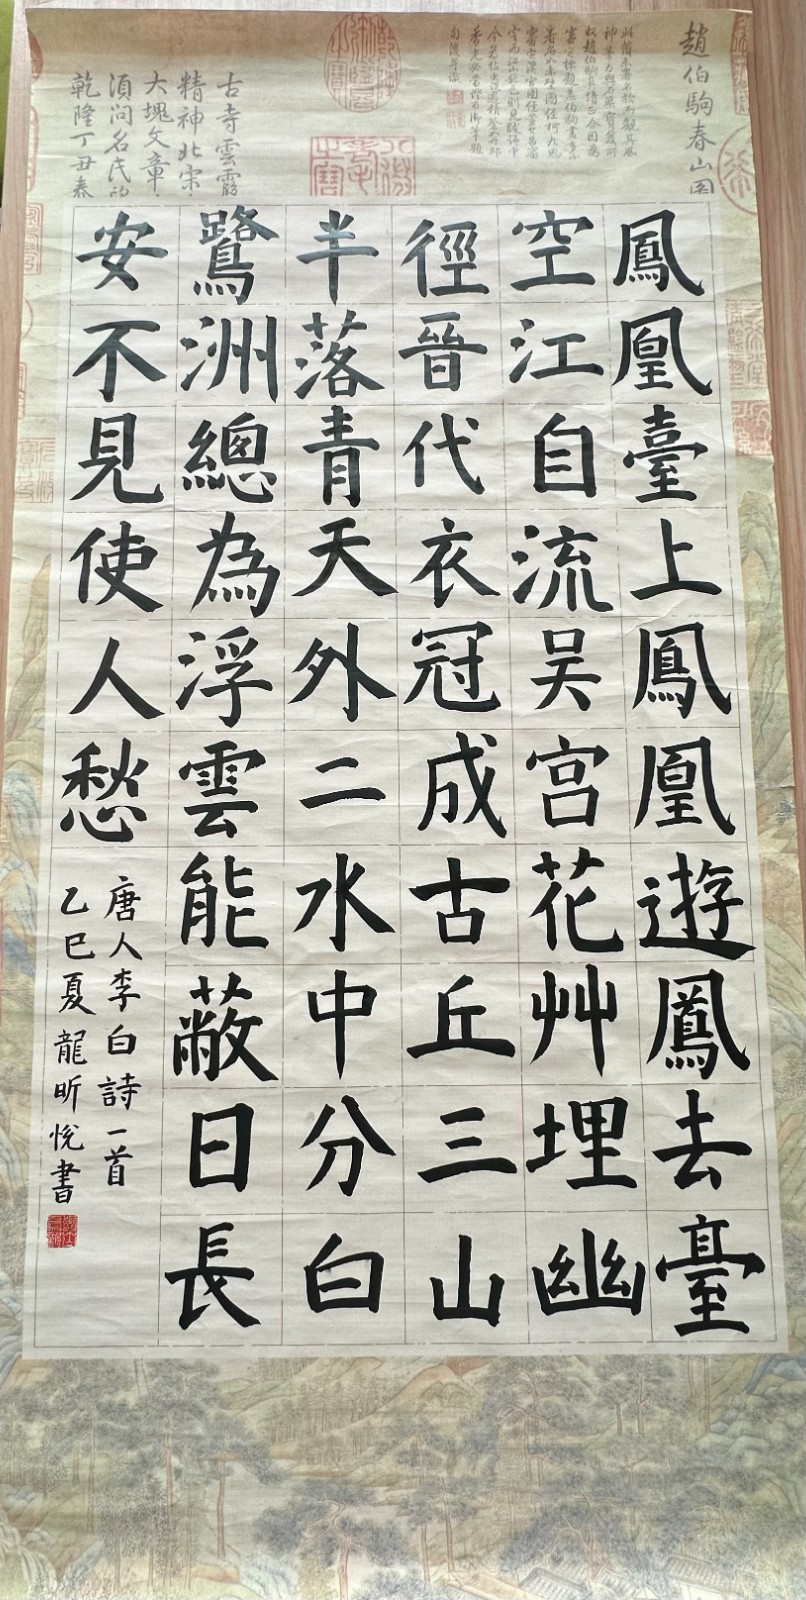 趙伯駒春山図
古寺雲霞
精神北宋
大塊文章
須問名氏的
乾隆丁丑春
鳳凰臺上鳳凰遊鳳去臺
空江自流吴宫花艸埋幽
徑晉代衣冠成古丘三山
半落青天外二水中分白
鷺洲總為浮雲能蔽日長
安不見使人愁
唐人李白詩一首
乙巳夏龍昕悅書